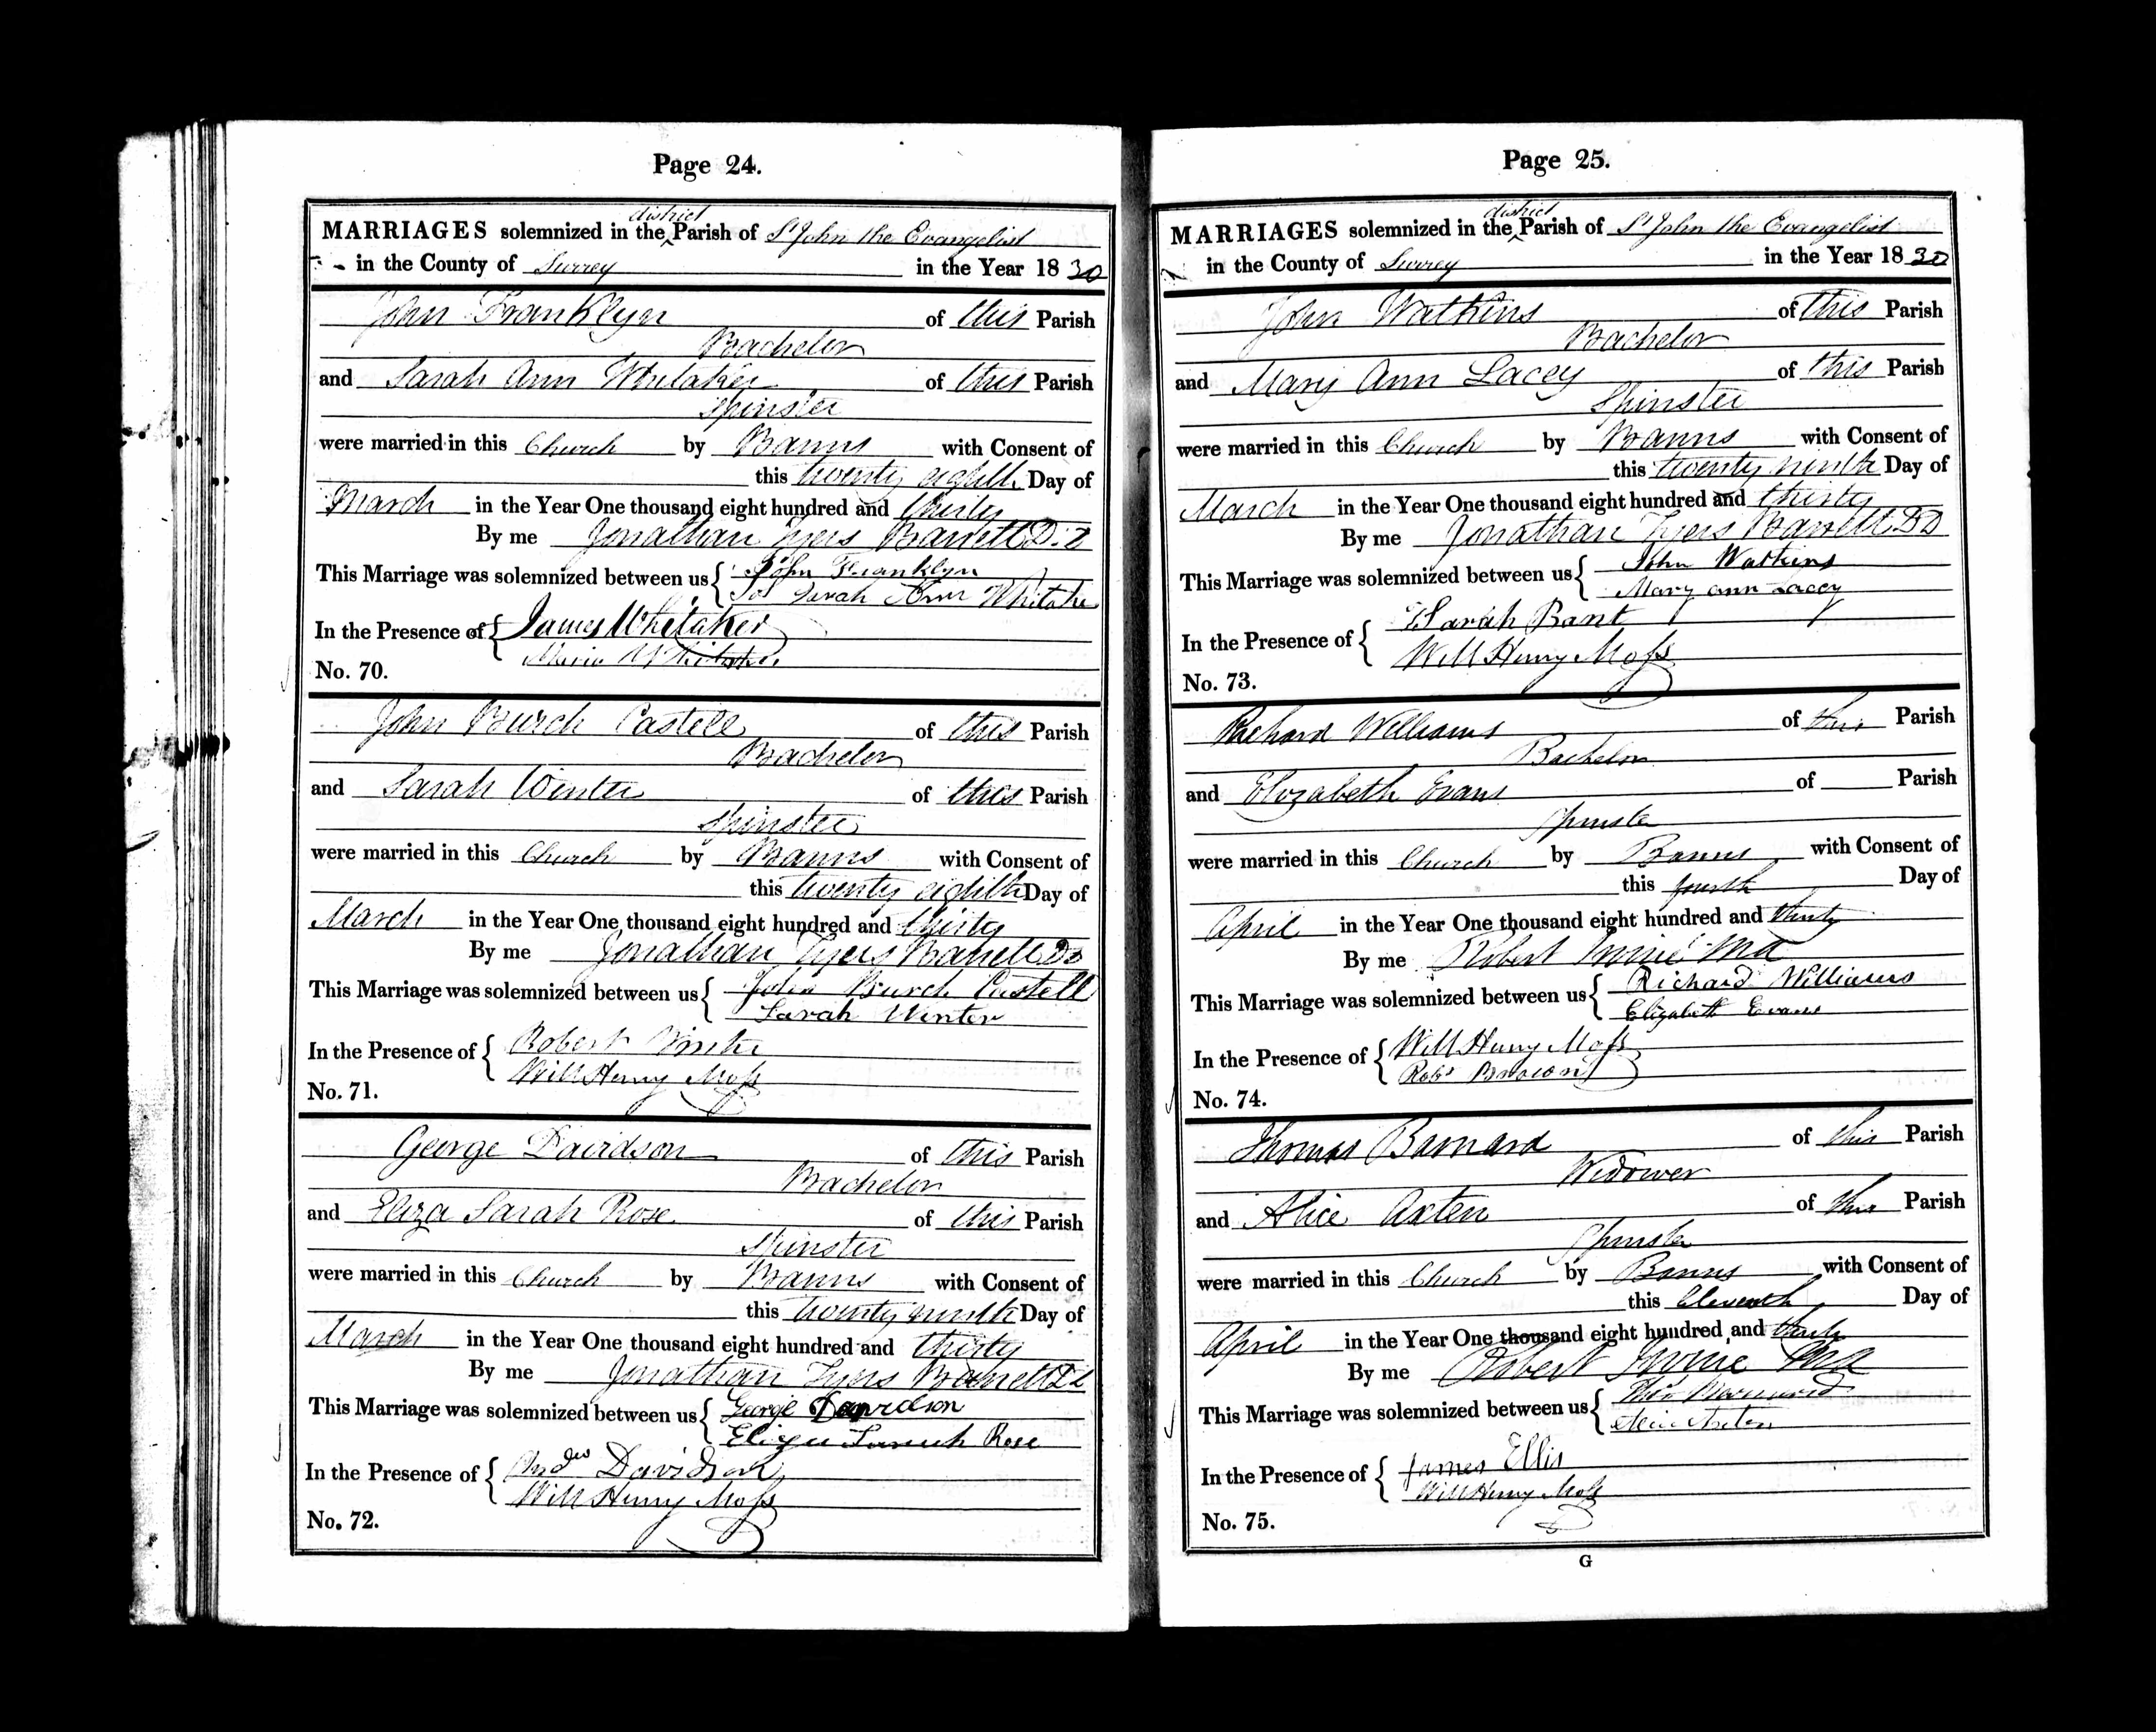 Page 24.
MARRIAGES solemnized in the district Parish of St John the Evangelist
in the County of Surrey in the Year 1830
John Franklyn of this Parish
Bachelor
and Sarah Ann Whitaker of this Parish
Spinster
were married in this Church by Banns with Consent of
this twenty eighth Day of
March in the Year One thousand eight hundred and thirty
By me Jonathan Tyers Barrett D.D
This Marriage was solemnized between us { John Franklyn
Sarah Ann Whitaker
In the Presence of { James Whitaker
Maria Whitaker
No. 70.
John Burch Castell of this Parish
Bachelor
and Sarah Winter of this Parish
Spinster
were married in this Church by Banns with Consent of
this twenty eighth Day of
March in the Year One thousand eight hundred and thirty
By me Jonathan Tyers Barrett DD
This Marriage was solemnized between us { John Burch Castell
Sarah Winter
In the Presence of { Robert Winter
Will Henry Moss
No. 71.
George Davidson of this Parish
Bachelor
and Eliza Sarah Rose of this Parish
Spinster
were married in this Church by Banns with Consent of
this twenty ninth Day of
March in the Year One thousand eight hundred and thirty
By me Jonathan Tyers Barrett DD
This Marriage was solemnized between us { George Davidson
Eliza Sarah Rose
In the Presence of { Davidson
Will Henry Moss
No. 72.
Page 25.
MARRIAGES solemnized in the district Parish of St John the Evangelist
in the County of Surrey in the Year 1830
John Watkins of this Parish
Bachelor
and Mary Ann Lacey of this Parish
Spinster
were married in this Church by Banns with Consent of
this twenty ninth Day of
March in the Year One thousand eight hundred and thirty
By me Jonathan Tyers Barrett DD
This Marriage was solemnized between us { John Watkins
Mary ann Lacey
In the Presence of { Sarah Bant
Will Henry Moss
No. 73.
Richard Williams of this Parish
Bachelor
and Elizabeth Evans of Parish
Spinster
were married in this Church by Banns with Consent of
this fourth Day of
April in the Year One thousand eight hundred and thirty
By me Robert Irvine MA
This Marriage was solemnized between us { Richard Williams
Elizabeth Evans
In the Presence of { Will Henry Moss
Robt Brown
No. 74.
Thomas Barnard of this Parish
Widower
and Alice Axten of this Parish
Spinster
were married in this Church by Banns with Consent of
this Eleventh Day of
April in the Year One thousand eight hundred and thirty
By me Robert Irvine MA
This Marriage was solemnized between us { Thos Barnard
Alice Axten
In the Presence of { James Ellis
Will Henry Moss
No. 75.
G